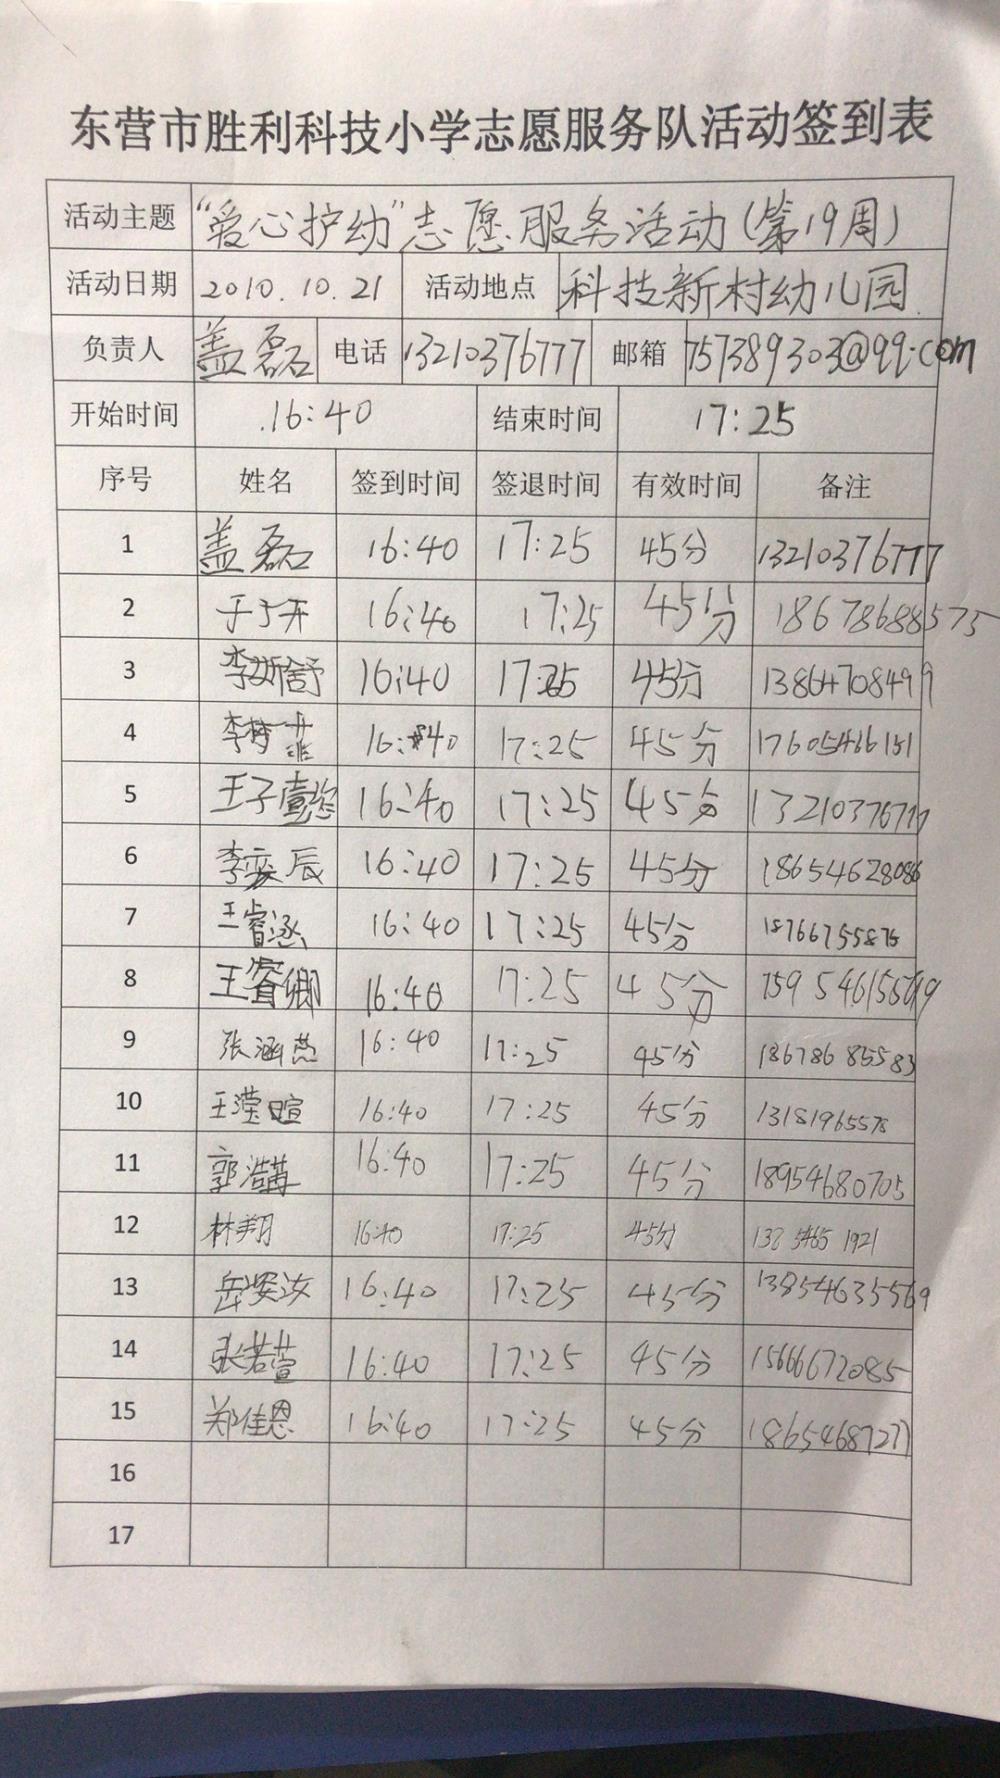 东营市胜利科技小学志愿服务队活动签到表
活动主题 “爱心护幼”志愿服务活动(第19周)
活动日期 2010.10.21 活动地点 科技新村幼儿园
负责人 盖磊 电话 13210376777 邮箱 757389303@qq.com
开始时间 16:40 结束时间 17:25
序号 姓名 签到时间 签退时间 有效时间 备注
1 盖磊 16:40 17:25 45分 13210376777
2 于子开 16:40 17:25 45分 18678688575
3 李斯舒 16:40 17:25 45分 13864708499
4 李梦菲 16:40 17:25 45分 17605466151
5 王子壹 16:40 17:25 45分 13210376777
6 李奕辰 16:40 17:25 45分 18654628086
7 王睿涵 16:40 17:25 45分 18766755875
8 王睿卿 16:40 17:25 45分
9 张涵燕 16:40 17:25 45分 18678685583
10 王滢暄 16:40 17:25 45分 13181965578
11 郭浩 16:40 17:25 45分 18954680705
12 林翔 16:40 17:25 45分 138 5465 1921
13 岳安汝 16:40 17:25 45分 13854635569
14 张若萱 16:40 17:25 45分 15666672085
15 郑佳恩 16:40 17:25 45分 18654687277
16
17